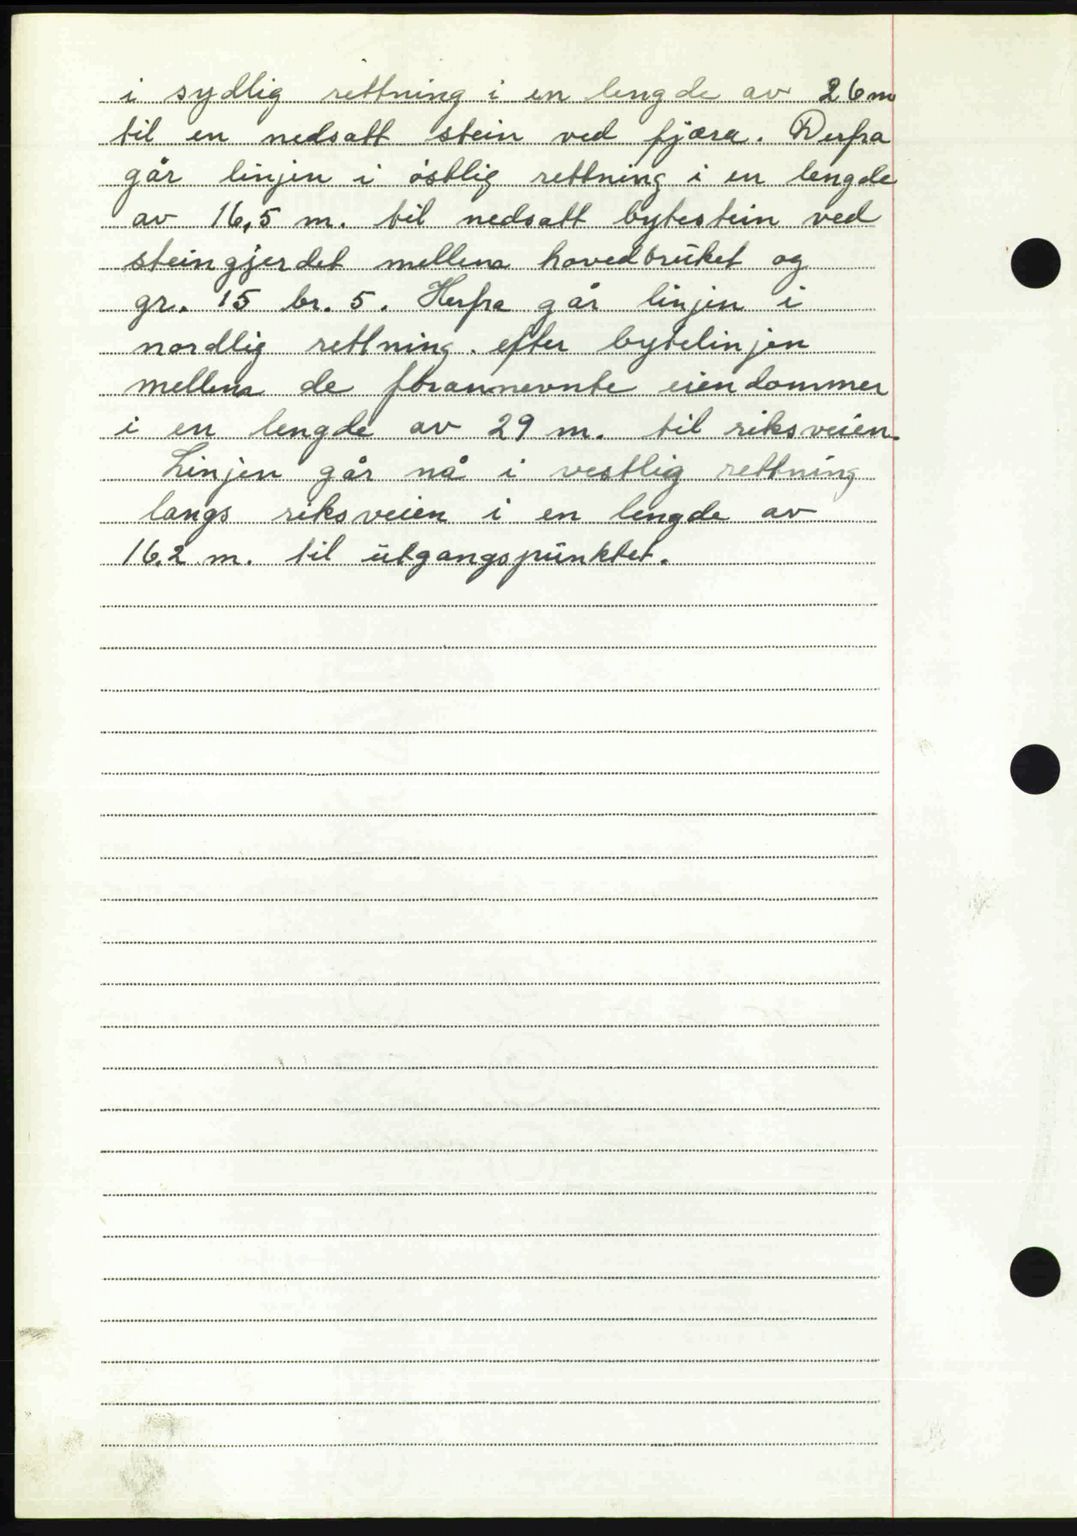 i sydlig rettning i en lengde av 26 m
til en nedsatt stein ved fjæra. Derfra
går linjen i östlig rettning i en lengde
av 16,5 m. til nedsatt bytestein ved
steingjerdet mellem hovedbrüket og
gr. 15 br. 5. Herfra går linjen i
nordlig rettning. efter bytelinjen
mellem de forannevnte eiendommer
i en lengde av 29 m. til riksveien.
Linjen går nå i vestlig rettning
langs riksveien i en lengde av
16.2 m. til ütgangspünktet.